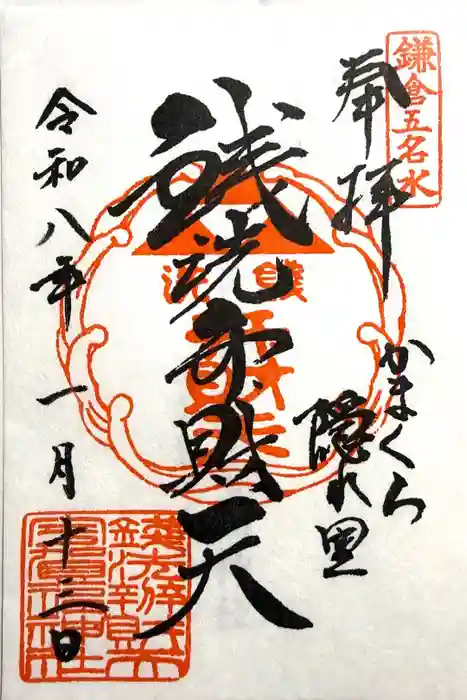 鎌倉五名水
奉拝
かまくら
隠れ里
銭洗弁財天
令和八年一月十三日